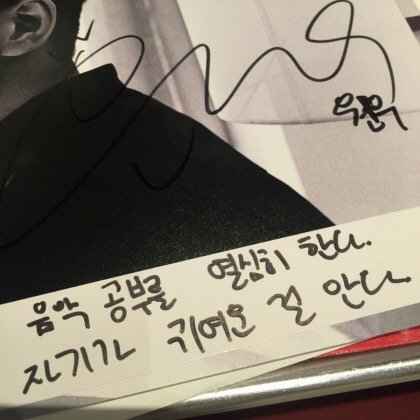 음악 공부를 열심히 한다.
자기가 귀여운 걸 안다.